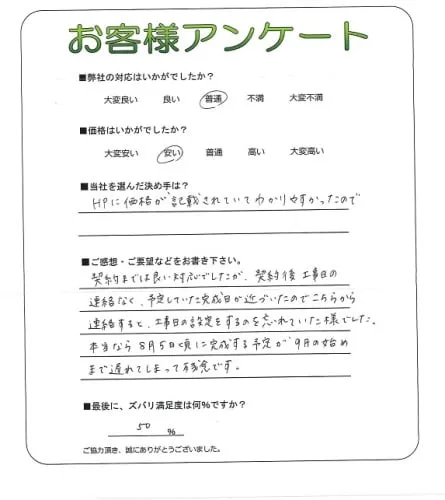 お客様アンケート
■弊社の対応はいかがでしたか?
大変良い 良い 普通 不満 大変不満
■価格はいかがでしたか?
大変安い 安い 普通 高い 大変高い
■当社を選んだ決め手は?
HPに価格が記載されていてわかりやすかったので
■ご感想・ご要望などをお書き下さい。
契約までは良い対応でしたが、契約後工事日の
連絡なく、予定していた完成日が近づいたのでこちらから
連絡すると、工事日の設定をするのを忘れていた様でした。
本当なら8月5日頃に完成する予定が9月の始め
まで遅れてしまって残念です。
■最後に、ズバリ満足度は何%ですか?
50 %
ご協力頂き、誠にありがとうございました。